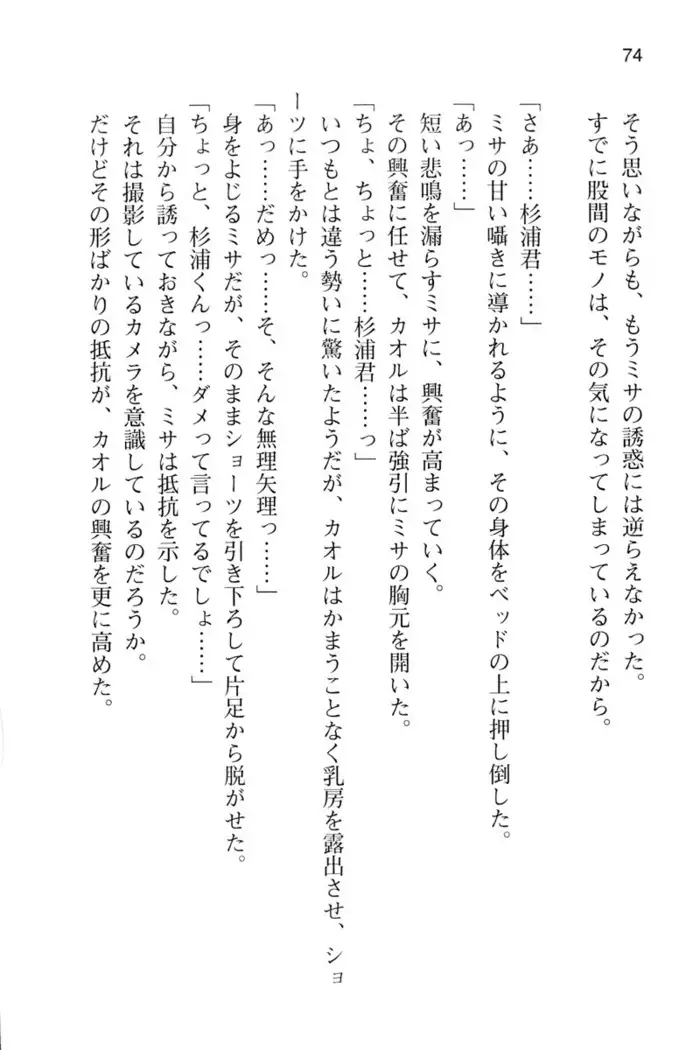 74
そう思いながらも、もうミサの誘惑には逆らえなかった。
すでに股間のモノは、その気になってしまっているのだから。
「さあ……杉浦君……」
ミサの甘い囁きに導かれるように、その身体をベッドの上に押し倒した。
「あっ……」
短い悲鳴を漏らすミサに、興奮が高まっていく。
その興奮に任せて、カオルは半ば強引にミサの胸元を開いた。
「ちょ、ちょっと……杉浦君……っ」
いつもとは違う勢いに驚いたようだが、カオルはかまうことなく乳房を露出させ、ショ
ーツに手をかけた。
「あっ……だめっ……そ、そんな無理矢理っ……」
身をよじるミサだが、そのままショーツを引き下ろして片足から脱がせた。
「ちょっと、杉浦くんっ……ダメって言ってるでしょ……」
自分から誘っておきながら、ミサは抵抗を示した。
それは撮影しているカメラを意識しているのだろうか。
だけどその形ばかりの抵抗が、カオルの興奮を更に高めた。